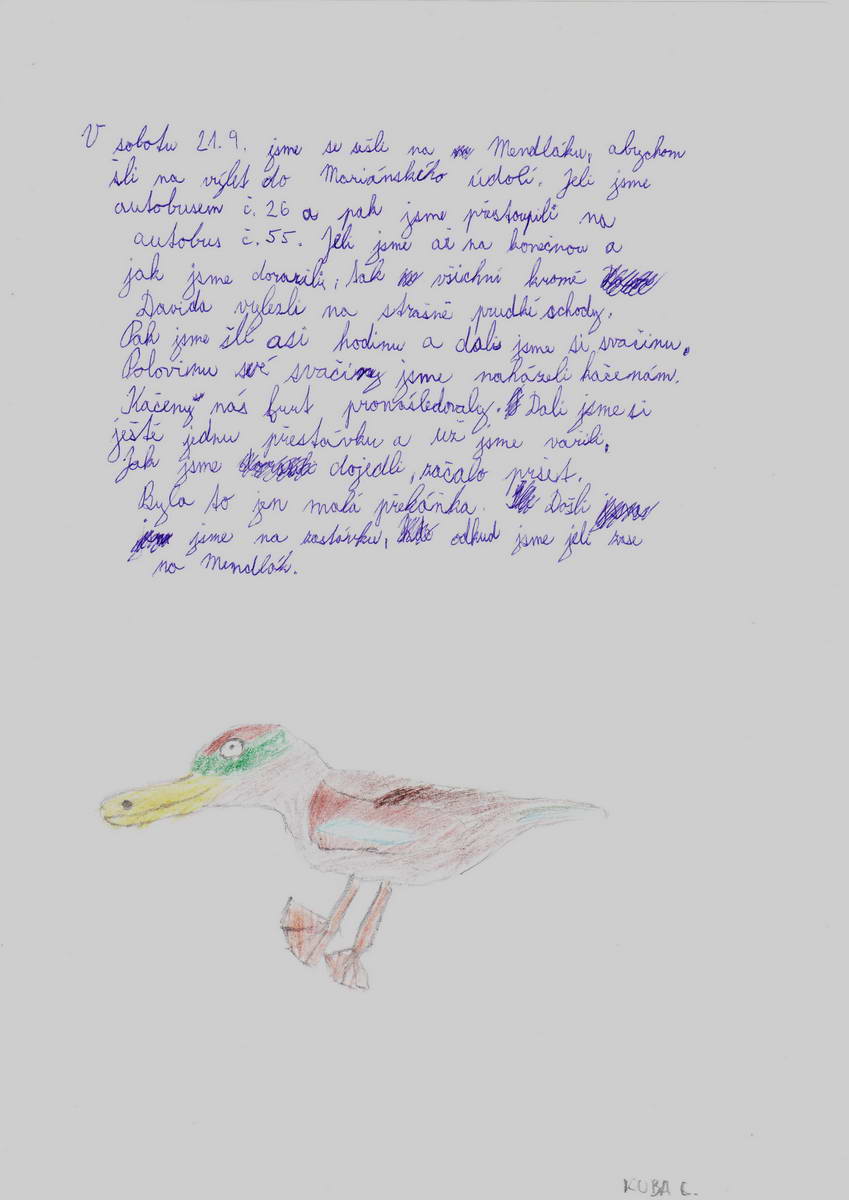 V sobotu 21.9. jsme se sešli na Mendláku, abychom
šli na výlet do Mariánského údolí. Jeli jsme
autobusem č. 26 a pak jsme přestoupili na
autobus č. 55. Jeli jsme až na konečnou a
jak jsme dorazili, tak všichni kromě
Davida vylezli na strašně prudké schody.
Pak jsme šli asi hodinu a dali jsme si svačinu.
Polovinu své svačiny jsme naházeli kačenám.
Kačeny nás furt pronásledovaly. Dali jsme si
ještě jednu přestávku a už jsme vařili.
Jak jsme dojedli, začalo pršet.
Byla to jen malá překážka. Došli
jsme na zastávku, odkud jsme jeli zase
na Mendlák.
KUBA C.